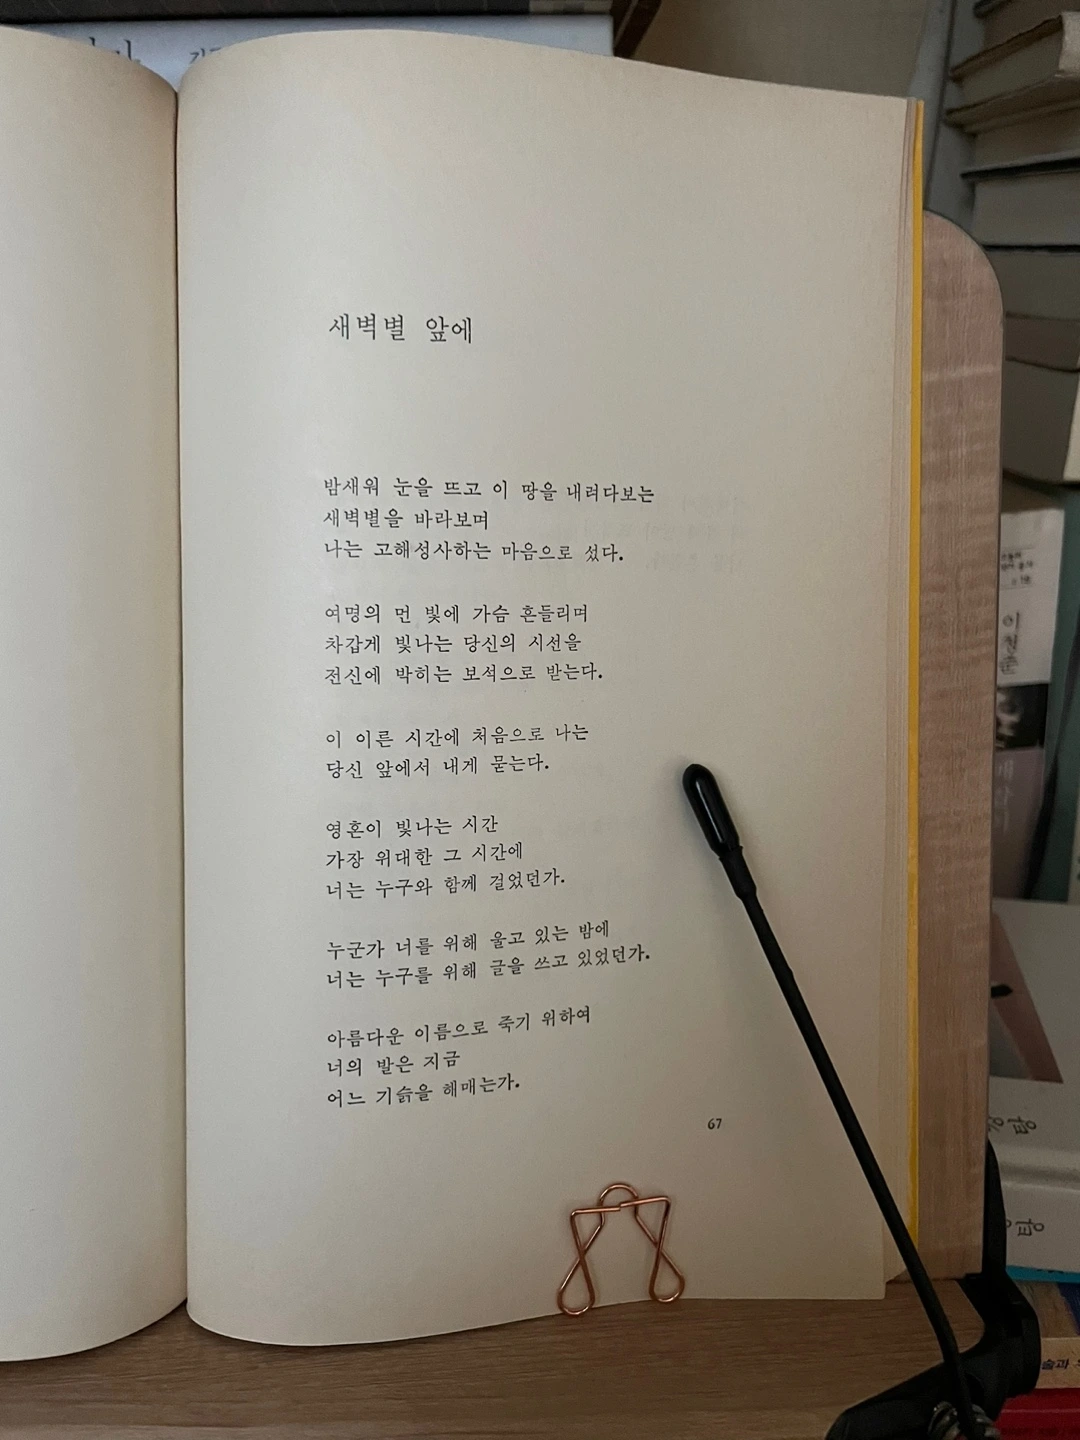 새벽별 앞에
밤새워 눈을 뜨고 이 땅을 내려다보는
새벽별을 바라보며
나는 고해성사하는 마음으로 섰다.
여명의 먼 빛에 가슴 흔들리며
차갑게 빛나는 당신의 시선을
전신에 박히는 보석으로 받는다.
이 이른 시간에 처음으로 나는
당신 앞에서 내게 묻는다.
영혼이 빛나는 시간
가장 위대한 그 시간에
너는 누구와 함께 걸었던가.
누군가 너를 위해 울고 있는 밤에
너는 누구를 위해 글을 쓰고 있었던가.
아름다운 이름으로 죽기 위하여
너의 발은 지금
어느 기슭을 헤매는가.
67
이청준